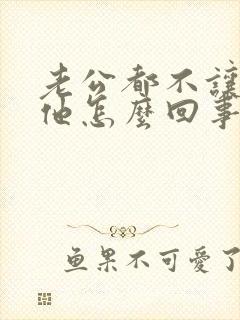 老公都不讓
他怎麼回事
鱼果不可愛了